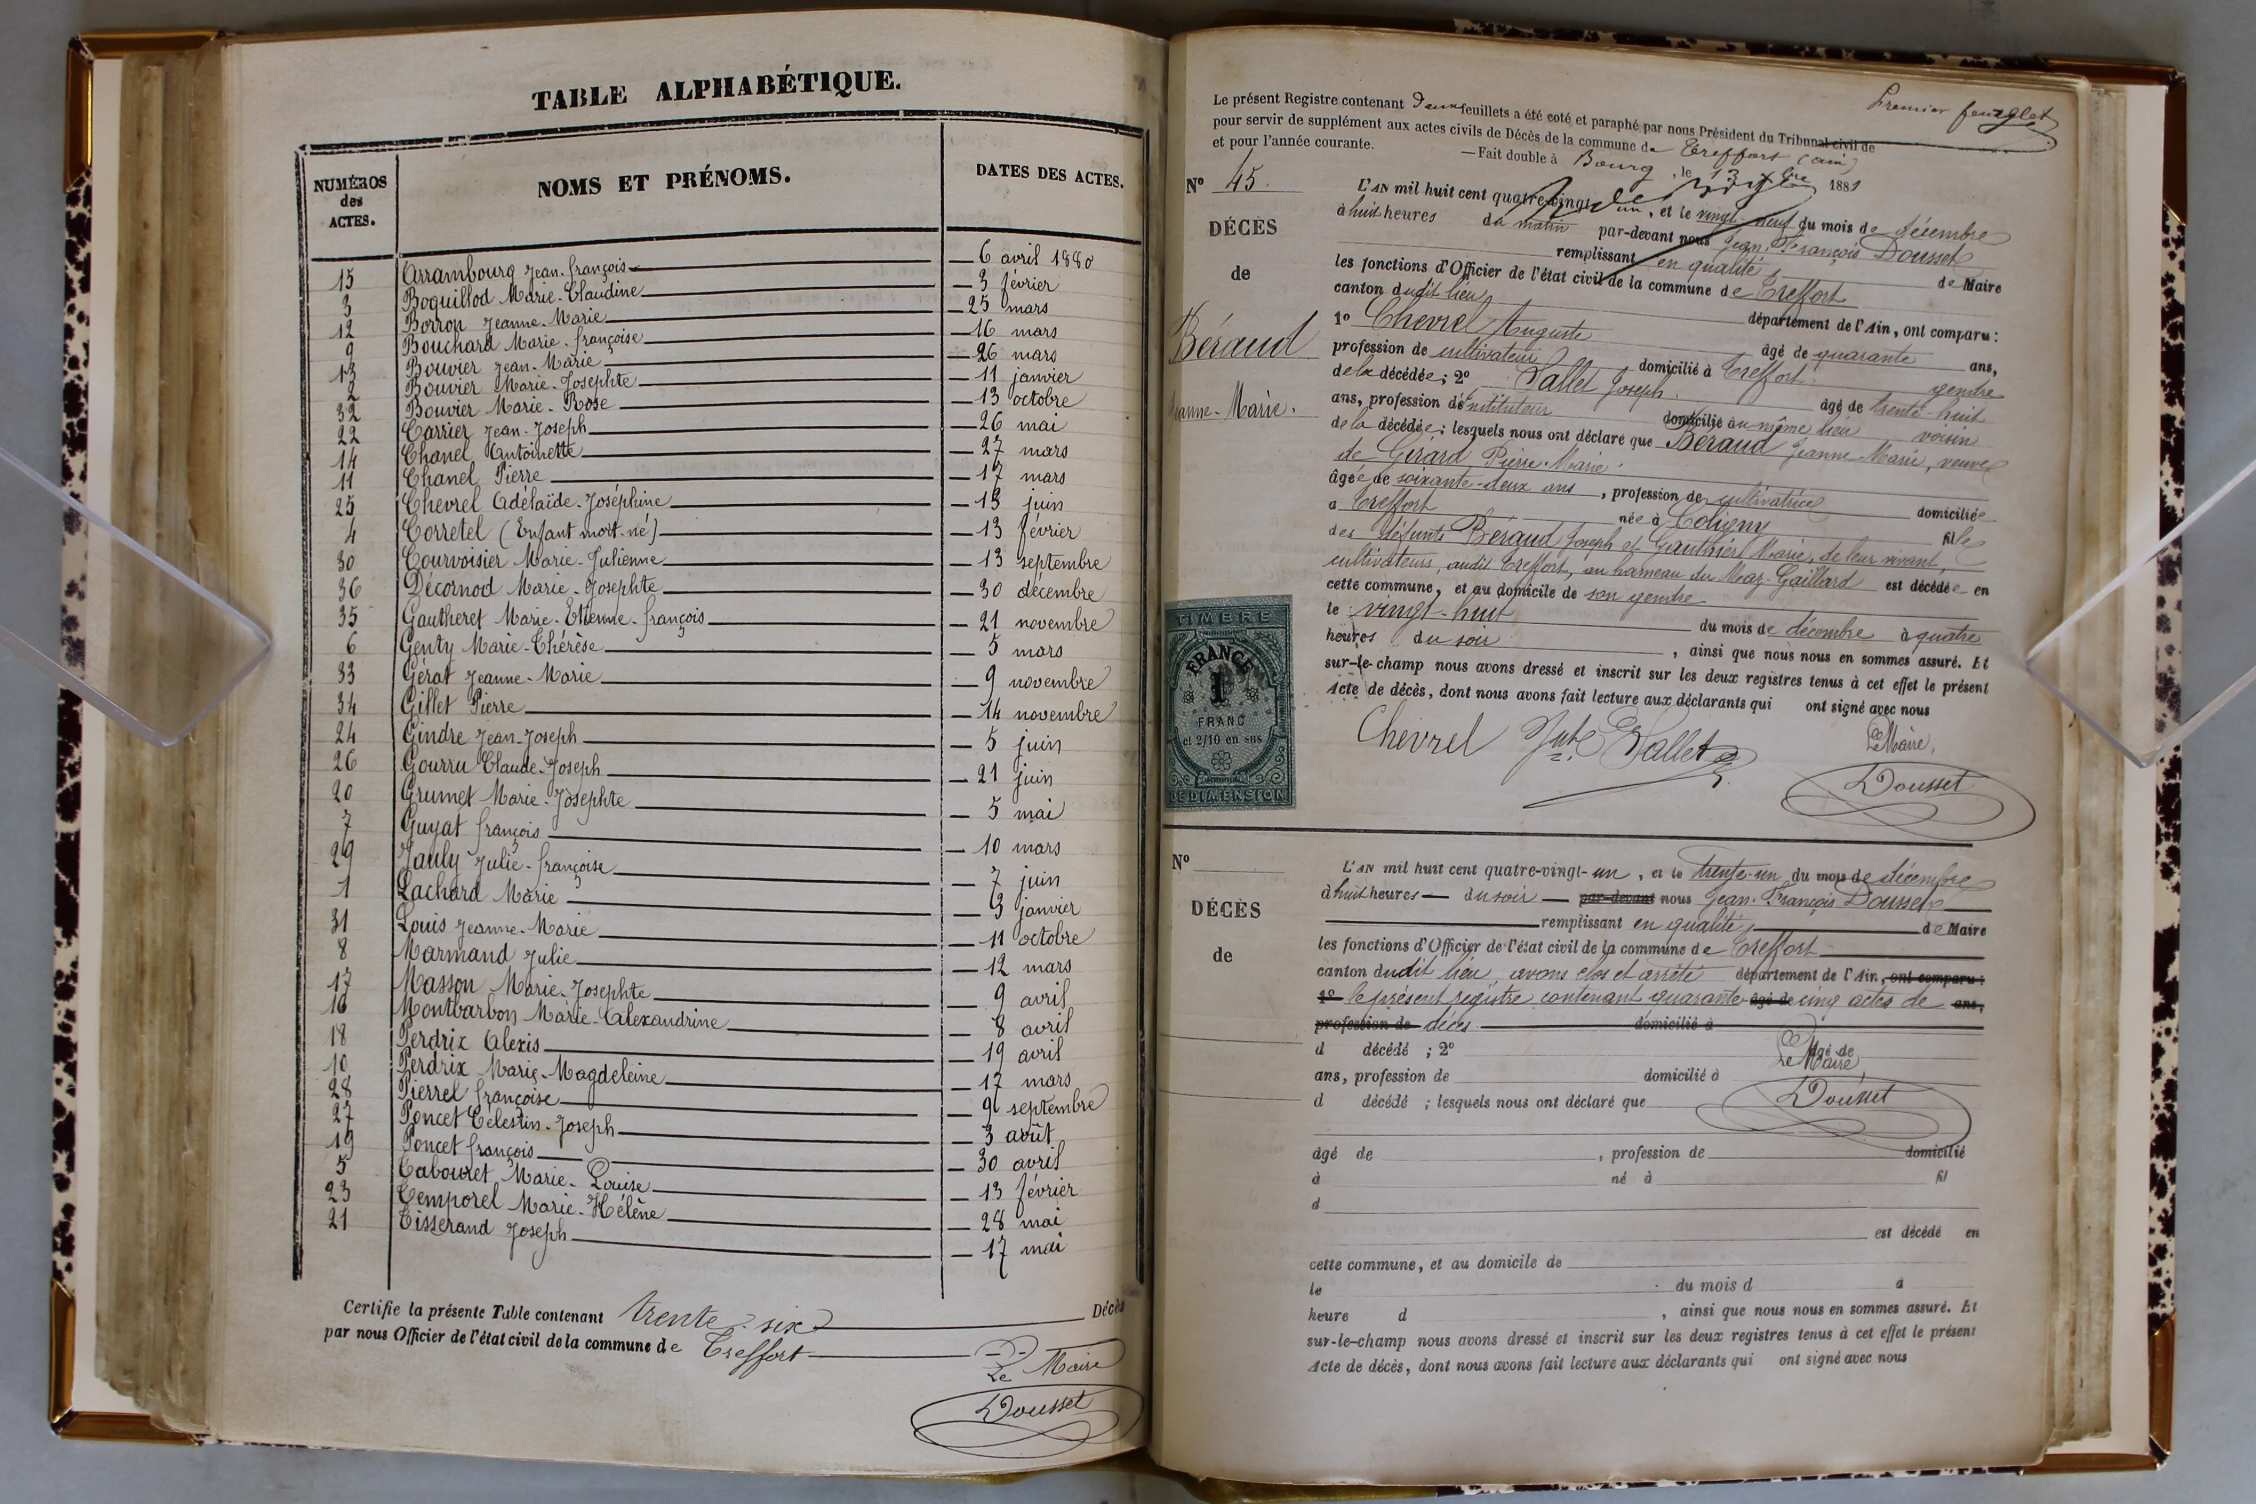 TABLE ALPHABÉTIQUE.
NUMÉROS des ACTES. NOMS ET PRÉNOMS. DATES DES ACTES.
15 Arrambourg Jean-françois 6 avril 1880
3 Boquillod Marie-Claudine 3 février
12 Borron Jeanne-Marie 25 mars
9 Bouchard Marie-françoise 16 mars
13 Bouvier Jean-Marie 26 mars
2 Bouvier Marie-Josephte 11 janvier
32 Bouvier Marie-Rose 13 octobre
22 Carrier Jean-Joseph 26 mai
14 Chanel Antoinette 27 mars
11 Chanel Pierre 17 mars
25 Chevrel Adélaïde-Joséphine 13 juin
4 Corretel (Enfant mort-né) 13 février
30 Courvoisier Marie-Julienne 13 septembre
36 Décornod Marie-Josephte 30 décembre
35 Gautheret Marie-Etienne-françois 21 novembre
6 Genty Marie-Thérèse 5 mars
33 Gérat Jeanne-Marie 9 novembre
34 Gillet Pierre 14 novembre
24 Gindre Jean-Joseph 5 juin
26 Gourru Claude-Joseph 21 juin
20 Grumet Marie-Josephte 5 mai
7 Guyat françois 10 mars
29 Jauly Julie-françoise 7 juin
1 Lachard Marie 3 janvier
31 Louis Jeanne-Marie 11 octobre
8 Marmand Julie 12 mars
17 Masson Marie-Josephte 9 avril
16 Montbarbon Marie-Alexandrine 8 avril
18 Perdrix Alexis 19 avril
10 Perdrix Marie-Magdeleine 17 mars
28 Pierrel françoise 9 septembre
27 Poncet Célestin-Joseph 3 août
19 Poncet françois 30 avril
5 Tabouret Marie-Louise 13 février
23 Temporel Marie-Hélène 28 mai
21 Tisserand Joseph 17 mai
Certifie la présente Table contenant trente-six Décès
par nous Officier de l'état civil de la commune de Treffort
Le Maire
Dousset
Premier feuillet
Le présent Registre contenant deux feuillets a été coté et paraphé par nous Président du Tribunal civil de
pour servir de supplément aux actes civils de Décès de la commune de Treffort (ain)
et pour l'année courante. — Fait double à Bourg, le 13 Xbre 1881
N° 45.
DÉCÈS
de
Béraud
Jeanne-Marie.
L'AN mil huit cent quatre-vingt-un, et le vingt-neuf du mois de décembre
à huit heures du matin par-devant nous Jean-François Dousset
remplissant en qualité de Maire
les fonctions d'Officier de l'état civil de la commune de Treffort
canton dudit lieu département de l'Ain, ont comparu :
1° Chevrel Auguste âgé de quarante ans,
profession de cultivateur domicilié à Treffort gendre
de la décédée ; 2° Sallet Joseph âgé de trente-huit
ans, profession d'instituteur domicilié au même lieu voisin
de la décédée ; lesquels nous ont déclaré que Béraud Jeanne-Marie, veuve
de Gérard Pierre-Marie
âgée de soixante-deux ans, profession de cultivatrice domiciliée
à Treffort née à Coligny fille
des défunts Béraud Joseph et Gauthier Marie, de leur vivant,
cultivateurs, audit Treffort, au hameau du Maz-Gaillard est décédée en
cette commune, et au domicile de son gendre
le vingt-huit du mois de décembre à quatre
heures du soir, ainsi que nous nous en sommes assuré. Et
sur-le-champ nous avons dressé et inscrit sur les deux registres tenus à cet effet le présent
Acte de décès, dont nous avons fait lecture aux déclarants qui ont signé avec nous
Chevrel Sallet
Le Maire,
Dousset
TIMBRE
FRANCE
1
FRANC
et 2/10 en sus
DE DIMENSION
N°
DÉCÈS
de
L'AN mil huit cent quatre-vingt-un, et le trente-un du mois de décembre
à huit heures du soir par-devant nous Jean-François Dousset
remplissant en qualité de Maire
les fonctions d'Officier de l'état civil de la commune de Treffort
canton dudit lieu avons clos et arrêté département de l'Ain, ont comparu :
1° le présent registre contenant quarante âgé de cinq actes de ans,
profession de décès domicilié à
d décédé ; 2° âgé de
Le Maire,
ans, profession de domicilié à
d décédé ; lesquels nous ont déclaré que
Dousset
âgé de , profession de domicilié
à né à fil
d
est décédé en
cette commune, et au domicile de
le du mois d à
heure d , ainsi que nous nous en sommes assuré. Et
sur-le-champ nous avons dressé et inscrit sur les deux registres tenus à cet effet le présent
Acte de décès, dont nous avons fait lecture aux déclarants qui ont signé avec nous